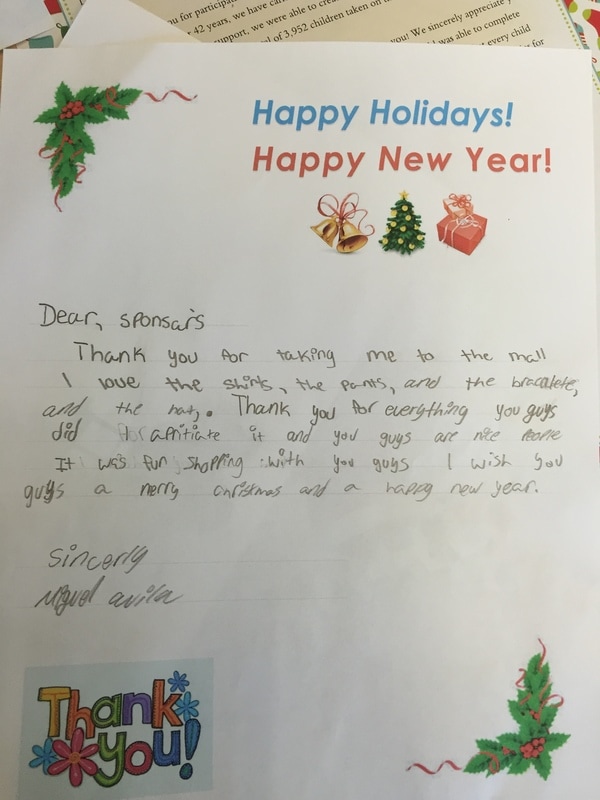 u for participa
r 42 years, we have car
support, we were able to crea
al of 3,952 children taken on
you! We sincerely appreciate y
was able to complete
t every child
s for
Happy Holidays!
Happy New Year!
Dear, sponsars
Thank you for taking me to the mall
I love the shirts, the pants, and the bracelete,
and the hat,. Thank you for everything you guys
did I apritiate it and you guys are nice people
It was fun shopping with you guys I wish you
guys a merry christmas and a happy new year.
Sincerly
Miguel avila
Thank
you!